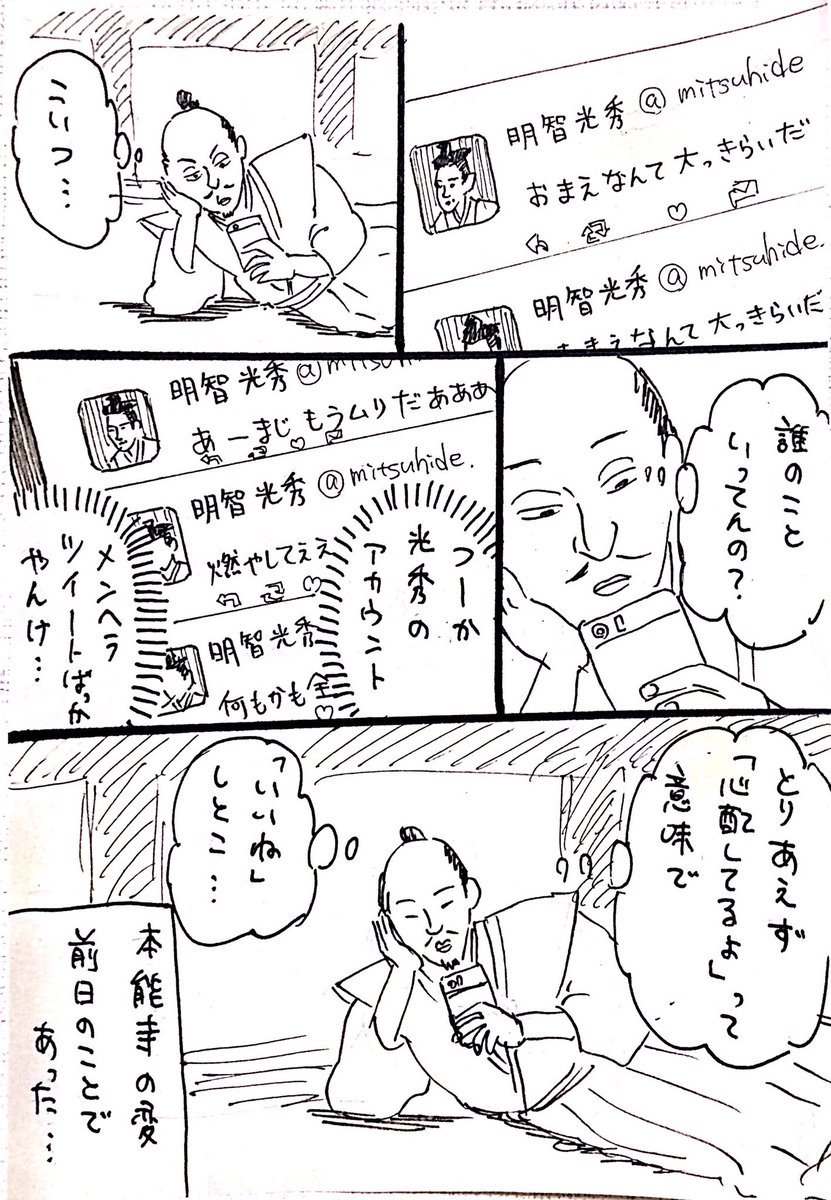 明智光秀@mitsuhide
おまえなんて大っきらいだ
明智光秀@mitsuhide.
おまえなんて大っきらいだ
こいつ…
誰のこと
いってんの？
明智光秀@mitsu
あーまじもうムリだあああ
明智光秀@mitsuhide.
燃やしてええ
明智光秀
何もかも全
つーか
光秀の
アカウント
メンヘラ
ツイートばっか
やんけ…
とりあえず
「心配してるよ」って
意味で
「いいね」
しとこ…
本能寺の変
前日のことで
あった…